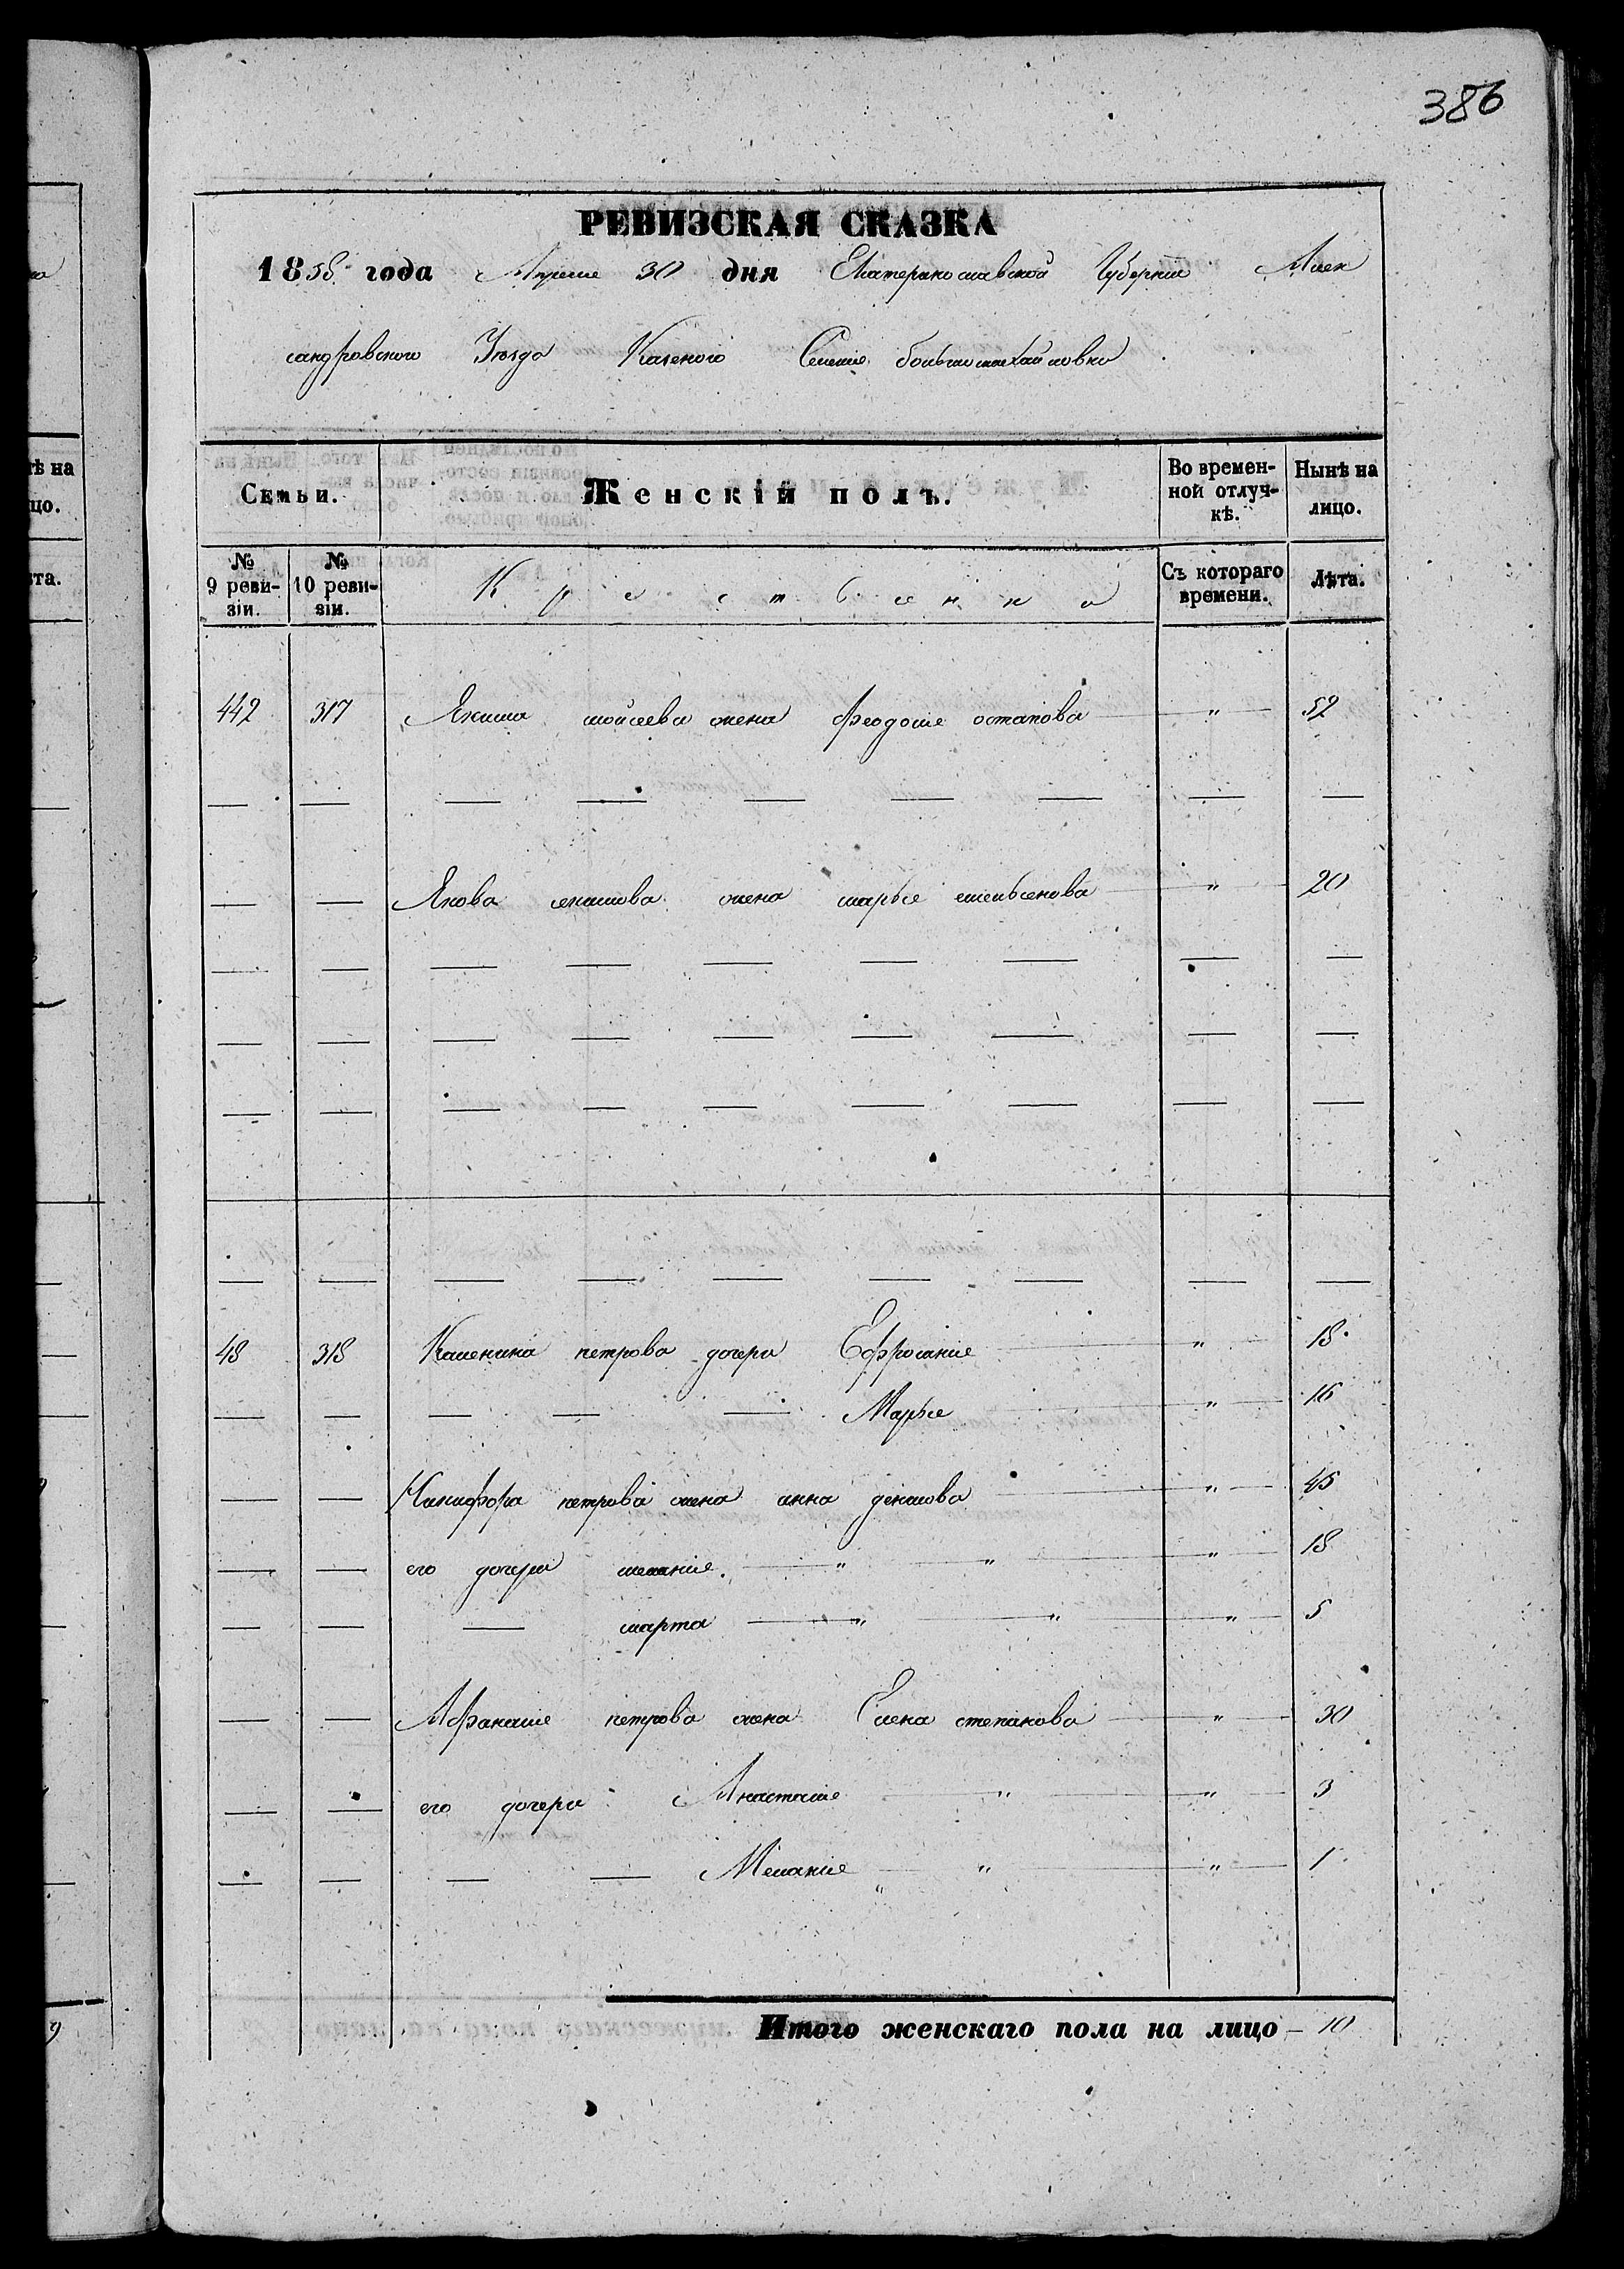 386
РЕВИЗСКАЯ СКАЗКА
1858 года Апреля 30 дня Екатеринославской Губернии Алек
сандровского Уезда Казеного Селение большемихайловки
Семьи. Женскій полъ. Во времен- Нынѣ на
ной отлуч- лицо.
кѣ.
№ № Съ котораго Лѣта.
9 реви- 10 реви- времени.
зіи. зіи.
442 317 Якима мойсеева жена Феодосия остапова " 52
Якова якимова жена марья 20
48 318 петрова дочери Ефросиния " 18
Марья " 16
Никифора петрова жена анна денисова " 45
его дочери мелания " " " 18
марта " " " 5
Афанасия петрова жена Елена степанова " 30
его дочери Анастасия " " 3
Мелания " " 1
Итого женскаго пола на лицо 10